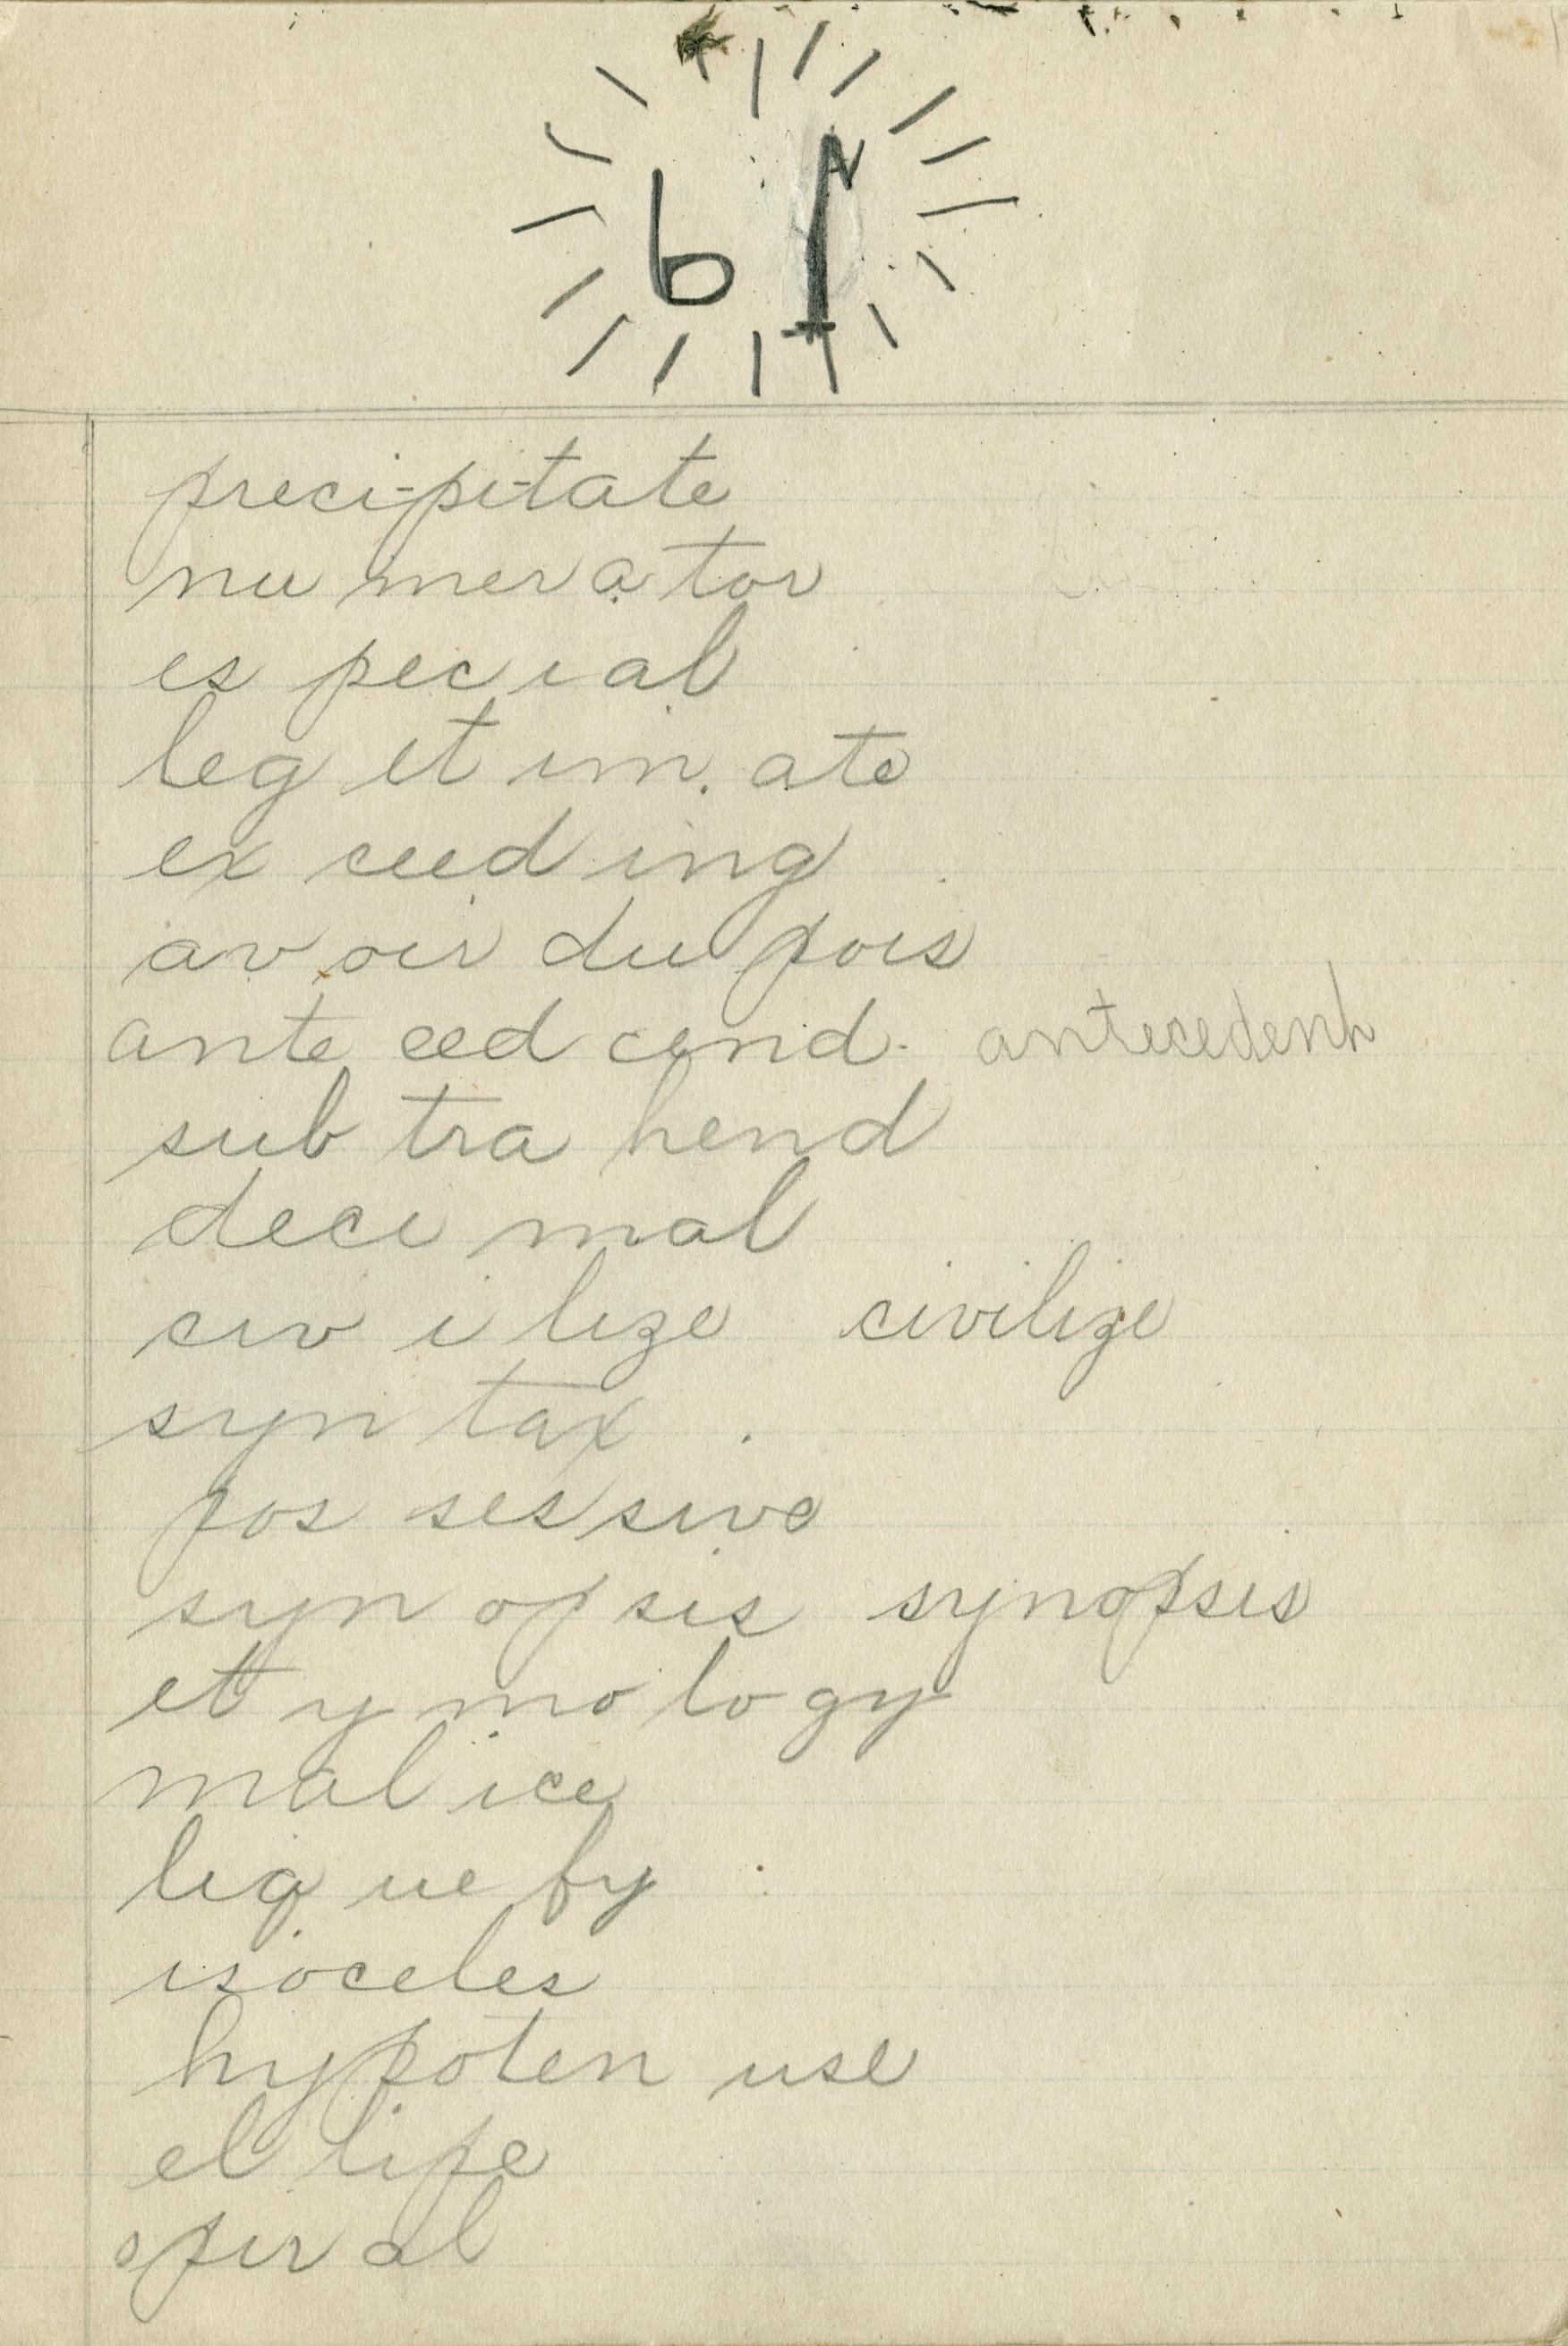 61
preci-pi-tate
nu mer a tor
es pec ial
leg et im ate
ex ceed ing
av oir du pois
ante ced cend. antecedent
sub tra hend
deci mal
civ i lize civilize
syn tax
pos ses sive
syn op sis synopsis
et y mo lo gy
mal ice
liq ue fy
isoceles
hypoten use
el lipe
spir al